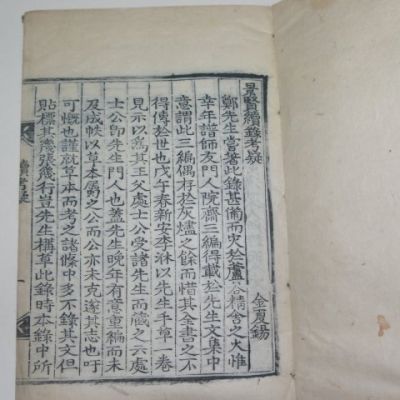 景賢續錄考疑
金夏錫
鄭先生嘗著此錄甚備而灾於蘆谷精舍之火惟
幸年譜師友門人院齋三編得載於先生文集中
意謂此三編偶存於灰燼之餘而惜其全書之不
得傳於世也戊午春新安李𣲖以先生手草一卷
見示以爲其王父處士公受諸先生而藏之云處
士公卽先生門人也蓋先生晚年有意重編而未
及成帙以草本屬之公而公亦未克遂其志也吁
可慨也謹就草本而考之諸條中多不錄其文但
貼標其慿張幾行豈先生構草此錄時本錄中所
續考疑